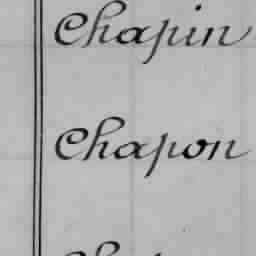 Chapin
Chapon